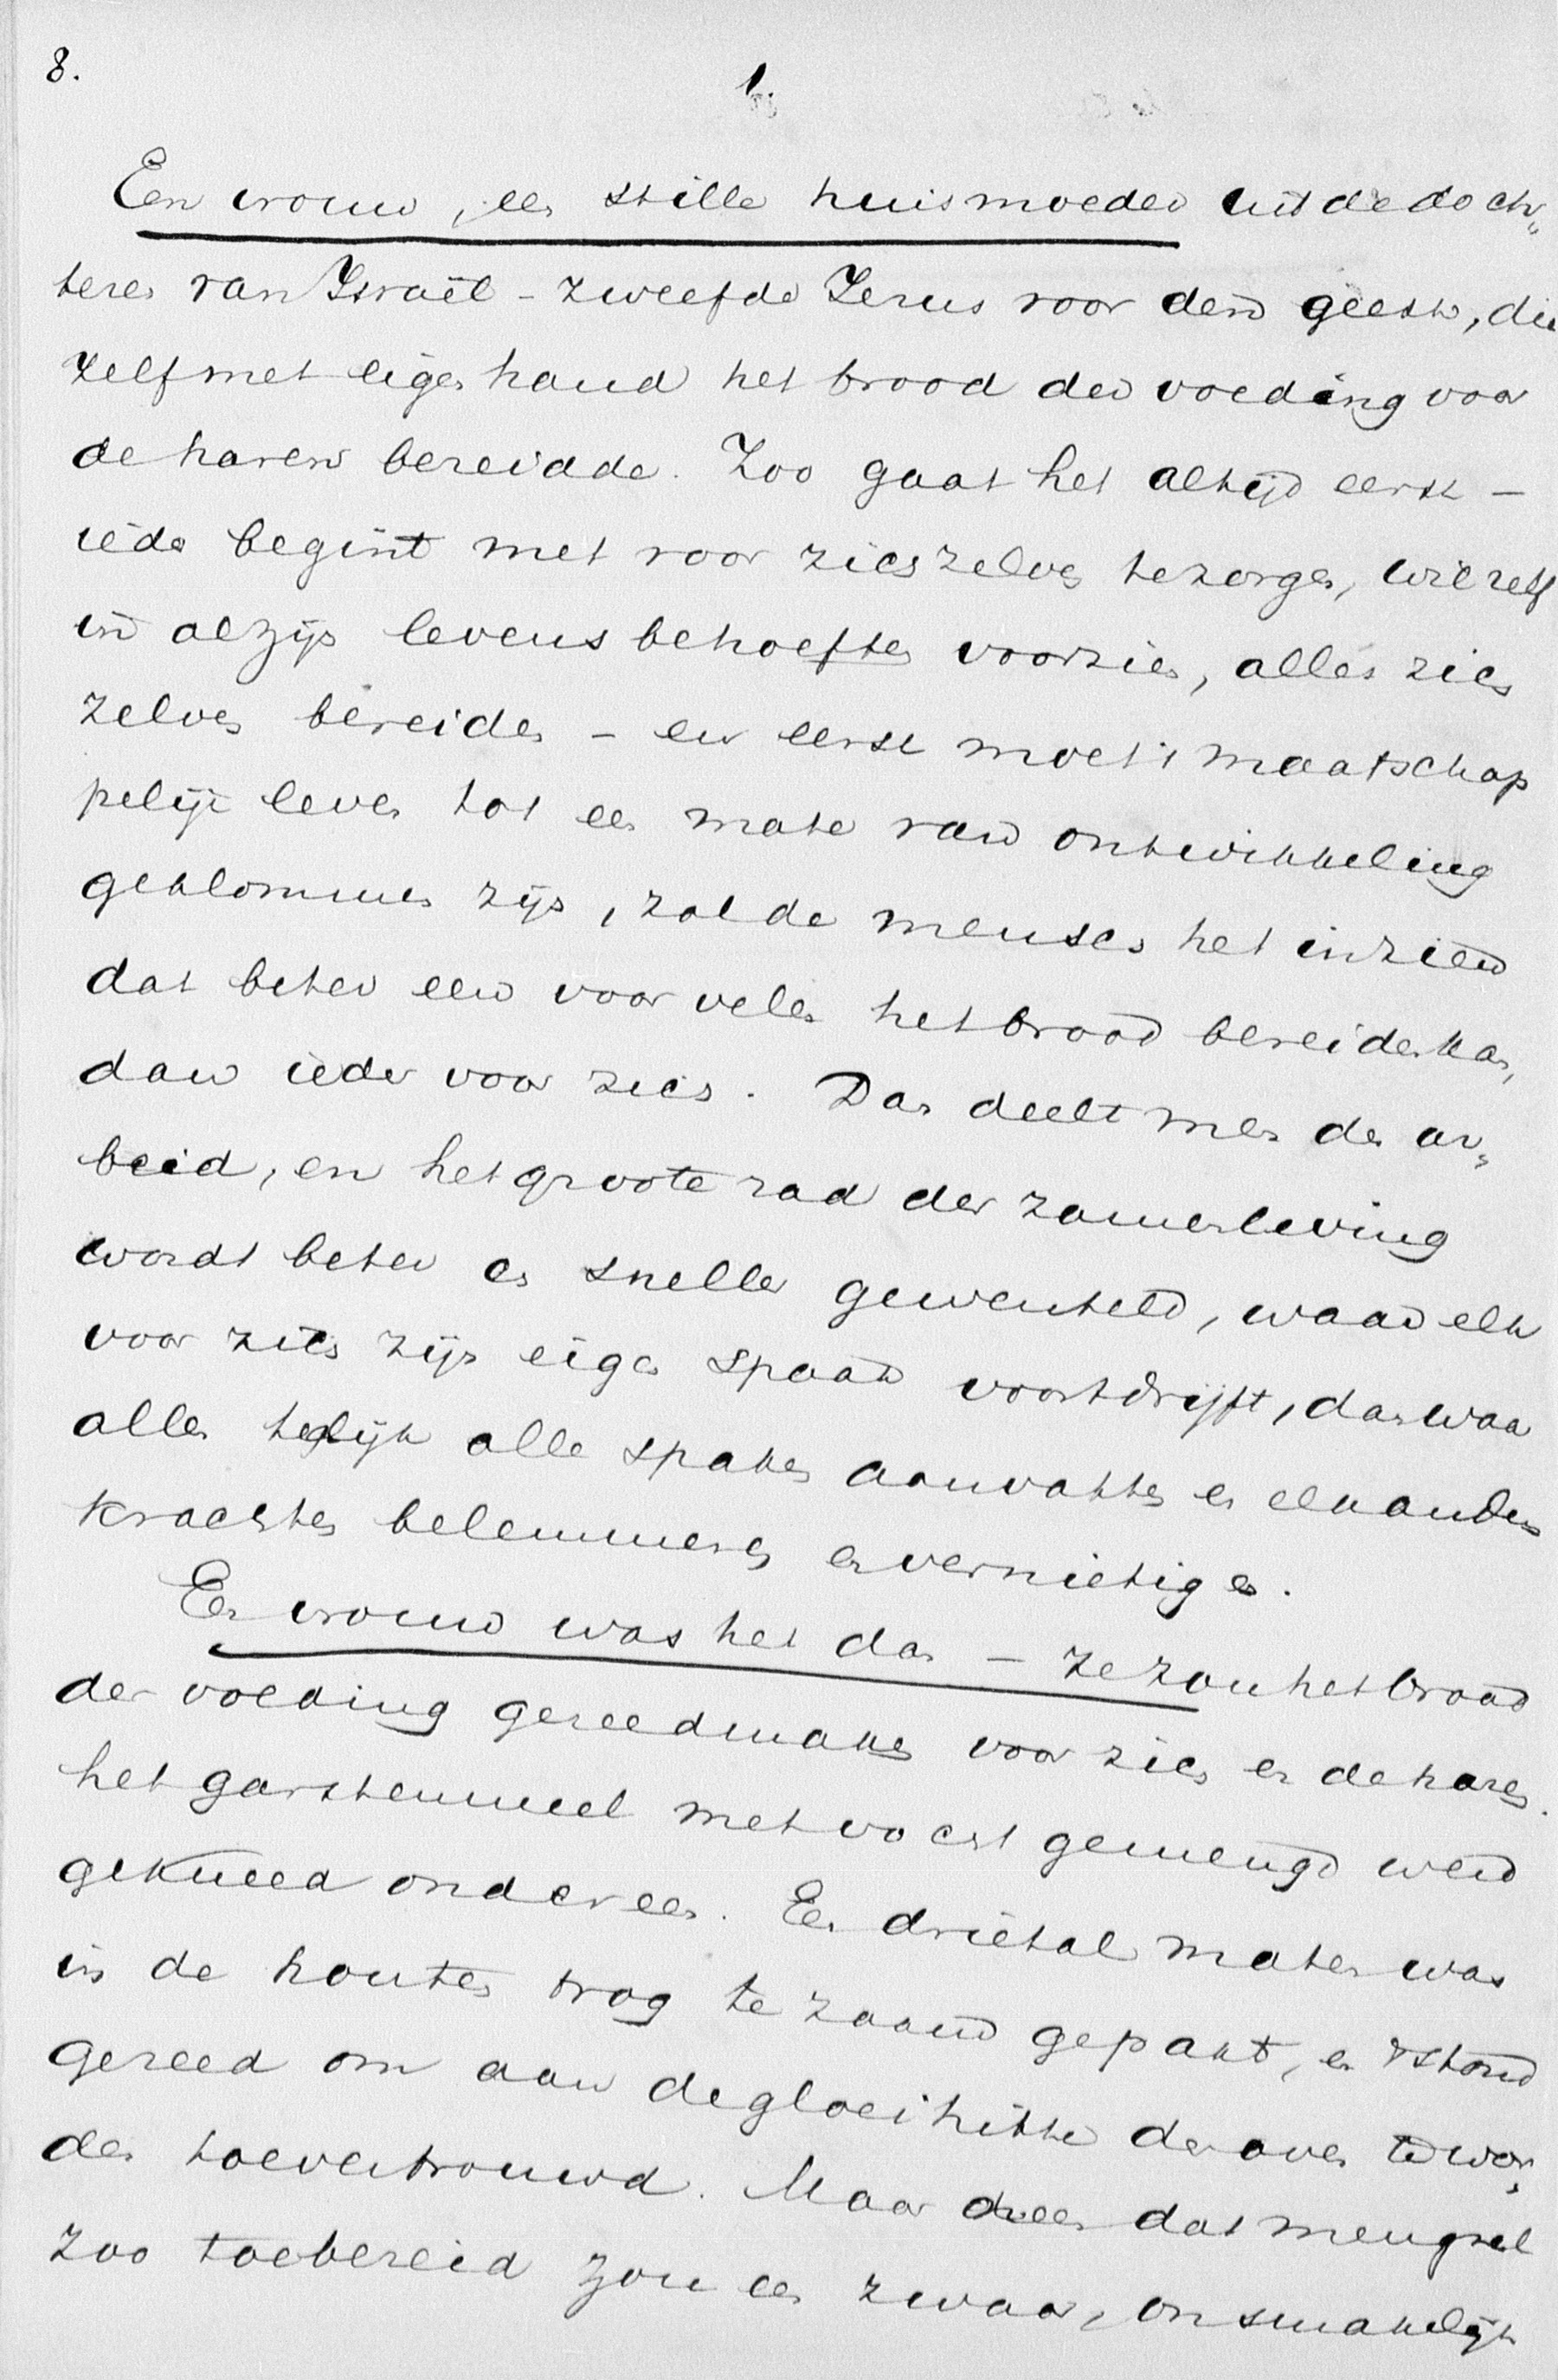 8.
1.
Een vrouw, een stille huismoeder uit de doch„
teren van Israël - zweefde Jezus voor den geest, die
zelf met eigen hand het brood der voeding voor
de haren bereidde. Zoo gaat het altijd eerst -
ieder begint met voor zich zelven te zorgen, wil zelf
in al zijn levensbehoeften voorzien, alles zich
zelven bereiden - en eerst moet 't maatschap
pelijk leven tot een mate van ontwikkeling
geklommen zijn, zal de mensch het inzien
dat beter een voor velen het brood bereiden kan,
dan ieder voor zich. Dan deelt men den ar„
beid, en het groote rad der zamenleving
wordt beter en sneller gewenteld, waar elk
voor zich zijn eigen spaak voortdrijft, dan waar
allen tegelijk alle spaken aanvatten en elkanders
krachten belemmeren en vernietigen.
Een vrouw was het dan - ze zou het brood
der voeding gereedmaken voor zich en de haren.
het garstenmeel met vocht gemengd werd
gekneed ondereen. Een drietal maten was
in de houten trog te zaam gepakt, en stond
gereed om aan de gloeihitte der oven te wor„
den toevertrouwd. Maar dat mengsel
zoo toebereid zou een zwaar, onsmakelijk